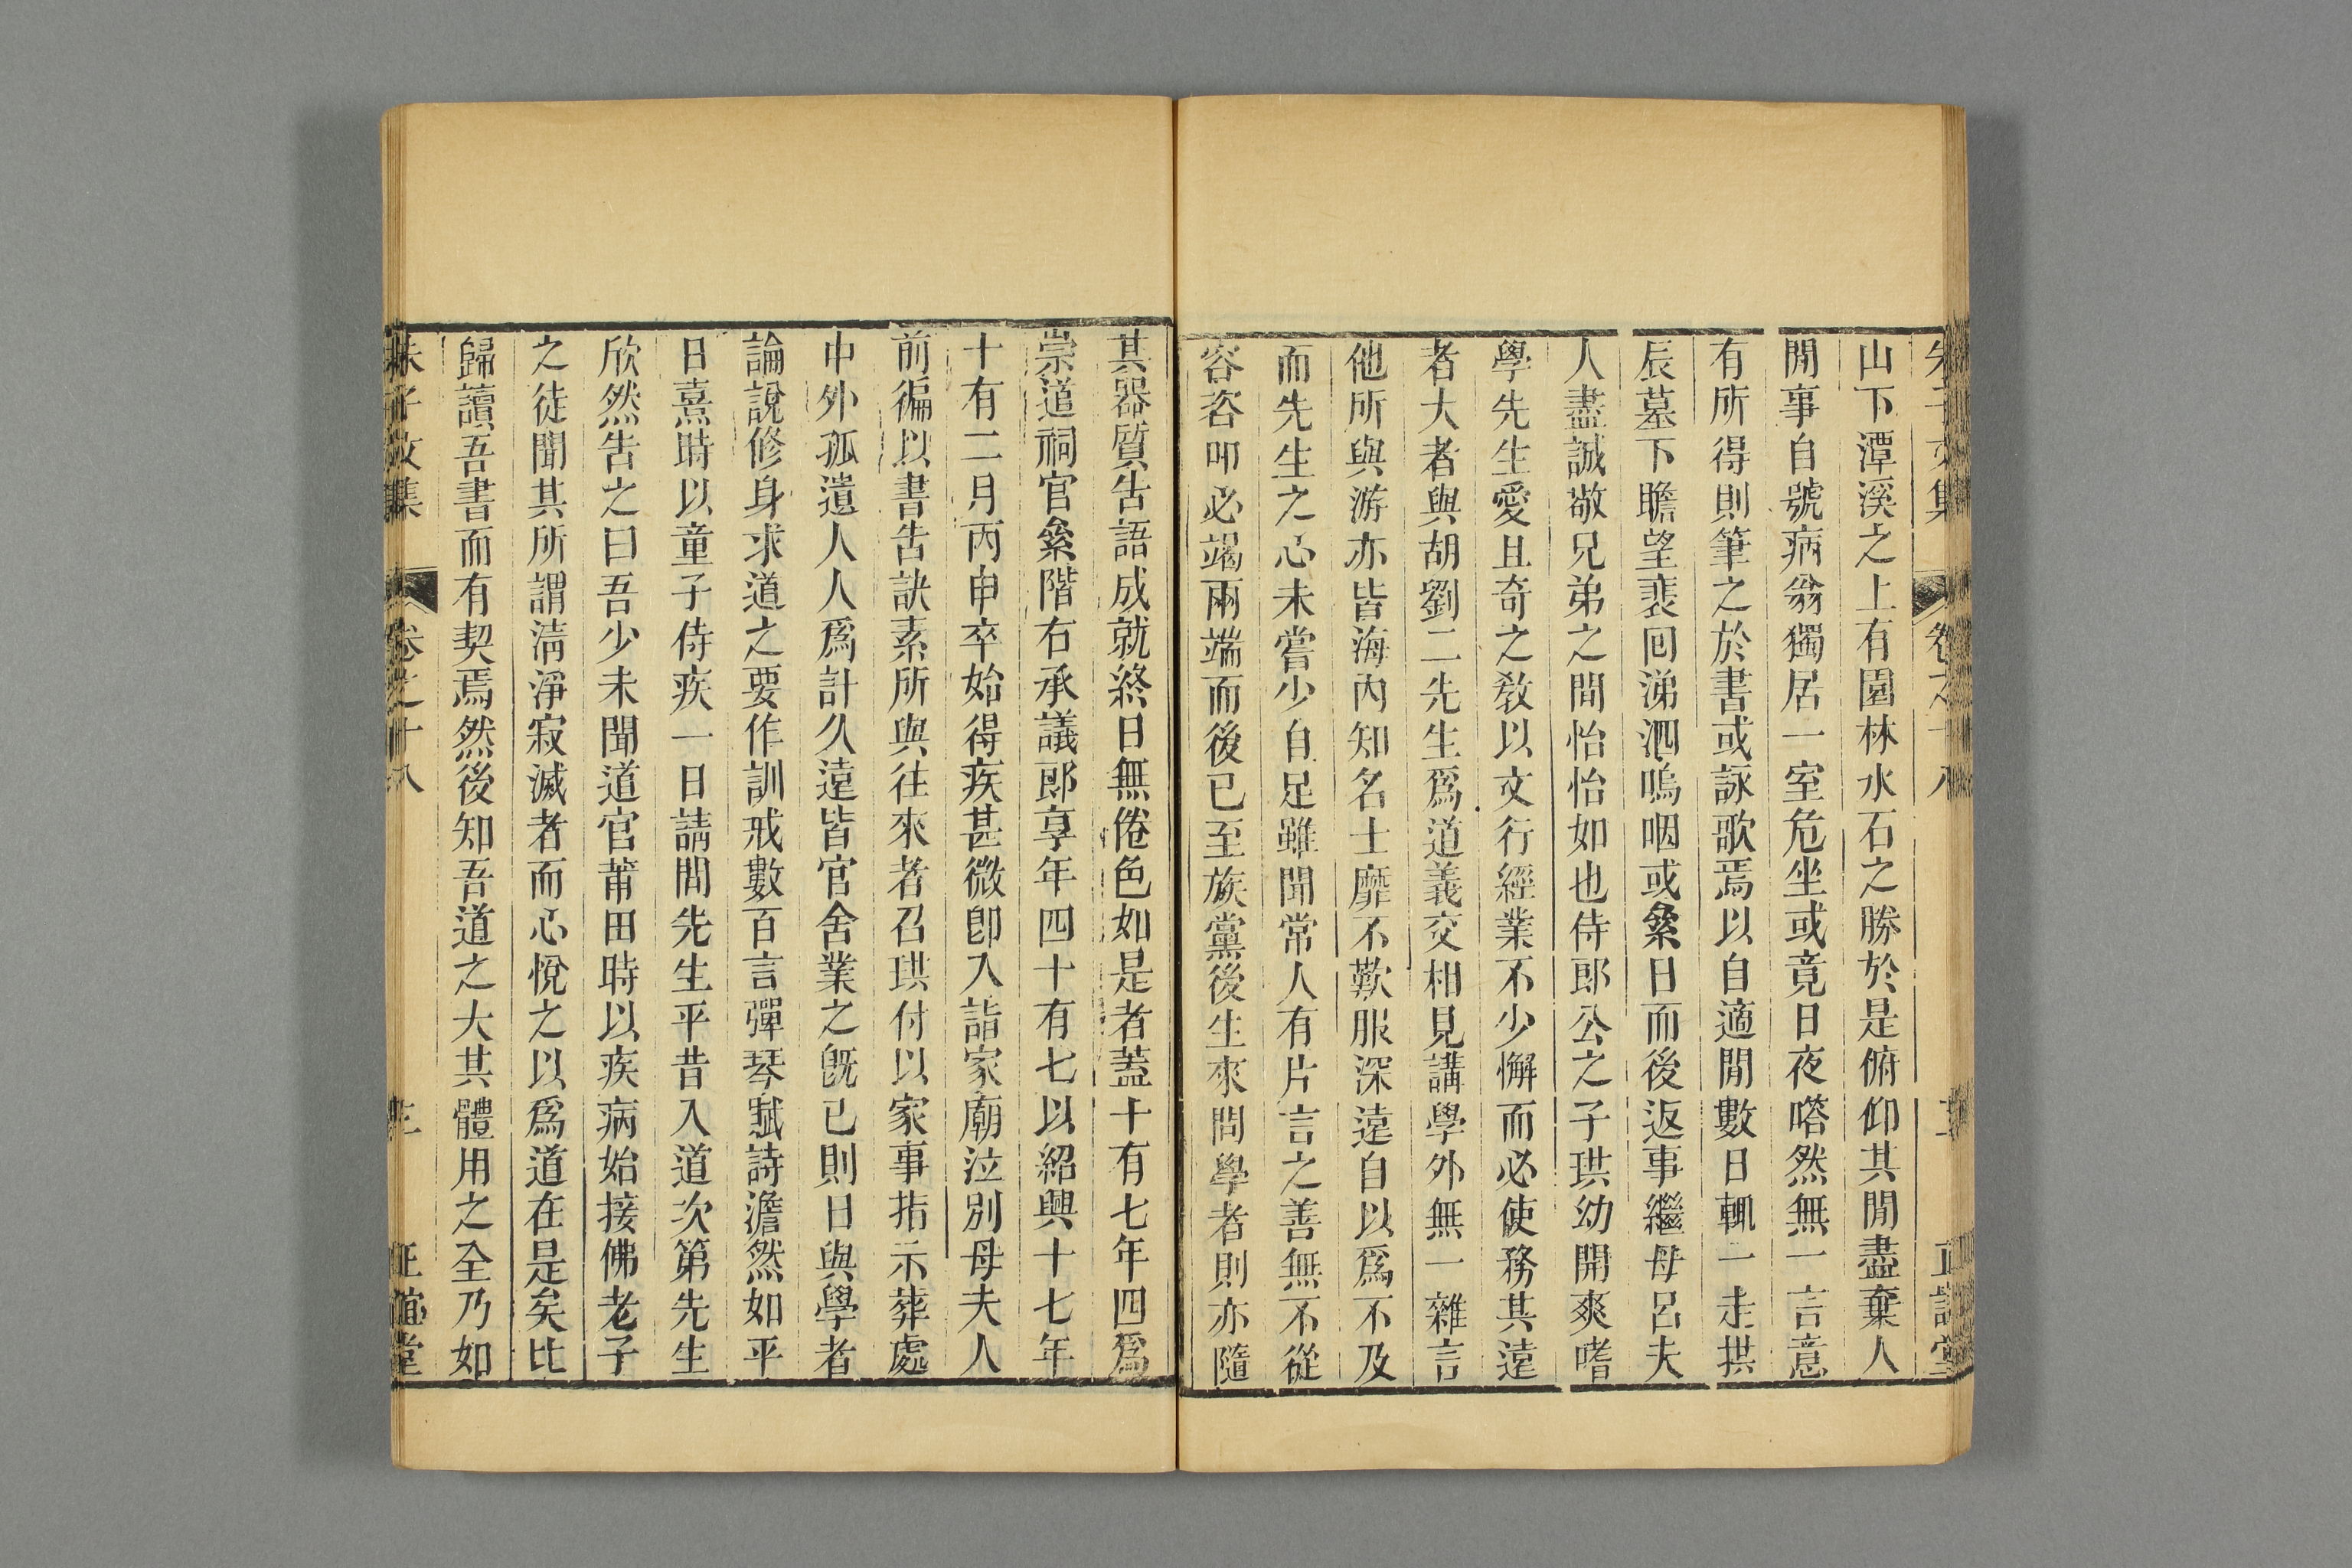 朱子文集 卷之十八 二 正誼堂
山下潭溪之上有園林水石之勝於是俯仰其間盡棄人
間事自號病翁獨居一室危坐或竟日夜嗒然無一言意
有所得則筆之於書或詠歌焉以自適間數日輒一走拱
辰墓下瞻望裴回涕泗嗚咽或絫日而後返事繼母呂夫
人盡誠敬兄弟之間怡怡如也侍郎公之子珙幼開爽嗜
學先生愛且奇之敎以文行經業不少懈而必使務其遠
者大者與胡劉二先生爲道義交相見講學外無一雜言
他所與游亦皆海內知名士靡不歎服深遠自以爲不及
而先生之心未嘗少自足雖聞常人有片言之善無不從
容咨叩必竭兩端而後已至族黨後生來問學者則亦隨
其器質告語成就終日無倦色如是者蓋十有七年四爲
崇道祠官絫階右承議郎享年四十有七以紹興十七年
十有二月丙申卒始得疾甚微卽入詣家廟泣別母夫人
前徧以書告訣素所與往來者召珙付以家事指示葬處
中外孤遺人人爲計久遠皆官舍業之旣已則日與學者
論說修身求道之要作訓戒數百言彈琴賦詩澹然如平
日熹時以童子侍疾一日請問先生平昔入道次第先生
欣然告之曰吾少未聞道官莆田時以疾病始接佛老子
之徒聞其所謂淸淨寂滅者而心悅之以爲道在是矣比
歸讀吾書而有契焉然後知吾道之大其體用之全乃如
朱子文集 卷之十八 三 正誼堂